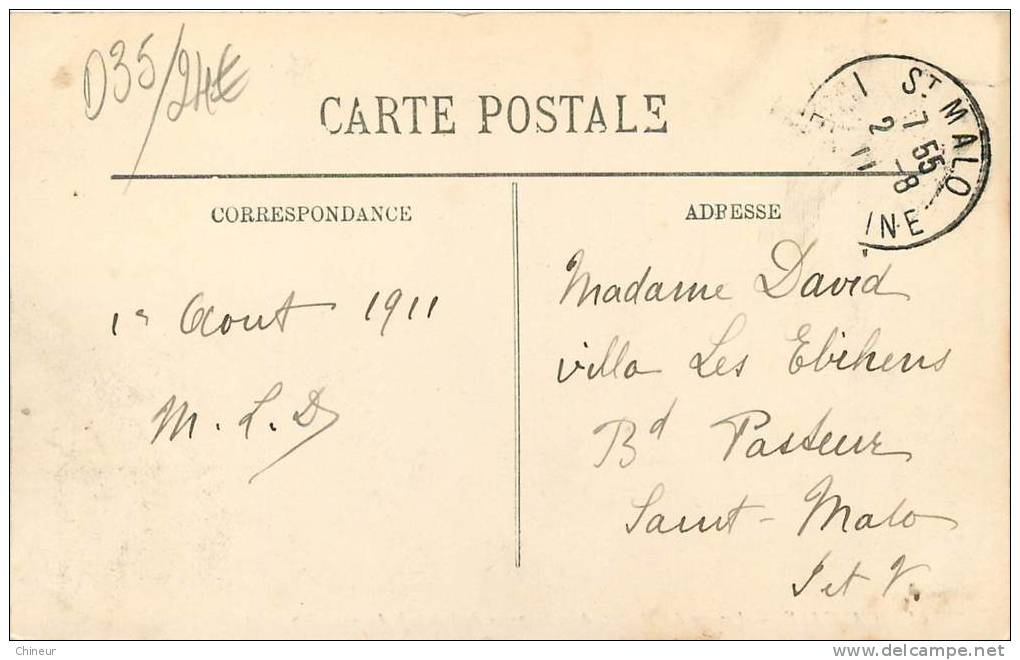 D35/24€
CARTE POSTALE
ST MALO
7 55
2 -8
11
INE
CORRESPONDANCE
1er Aout 1911
M. L. D
ADRESSE
Madame David
villa Les Ebihens
Bd Pasteur
Saint-Malo
I et V.
Chineur
delcampe.net